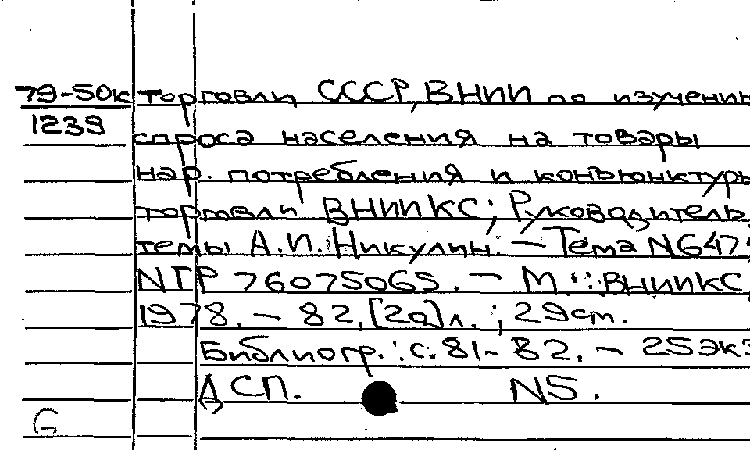 79-50к торговли СССР, ВНИИ по изучению
1239 спроса населения на товары
нар. потребления и конъюнктуры
торговли ВНИИКС; Руководитель
темы А.И. Никулин. – Тема N647
NГР 76075065. – М.: ВНИИКС,
1978. – 82, [2а] л.; 29 см.
Библиогр.: с. 81-82. – 25 экз
ДСП. N5.
G